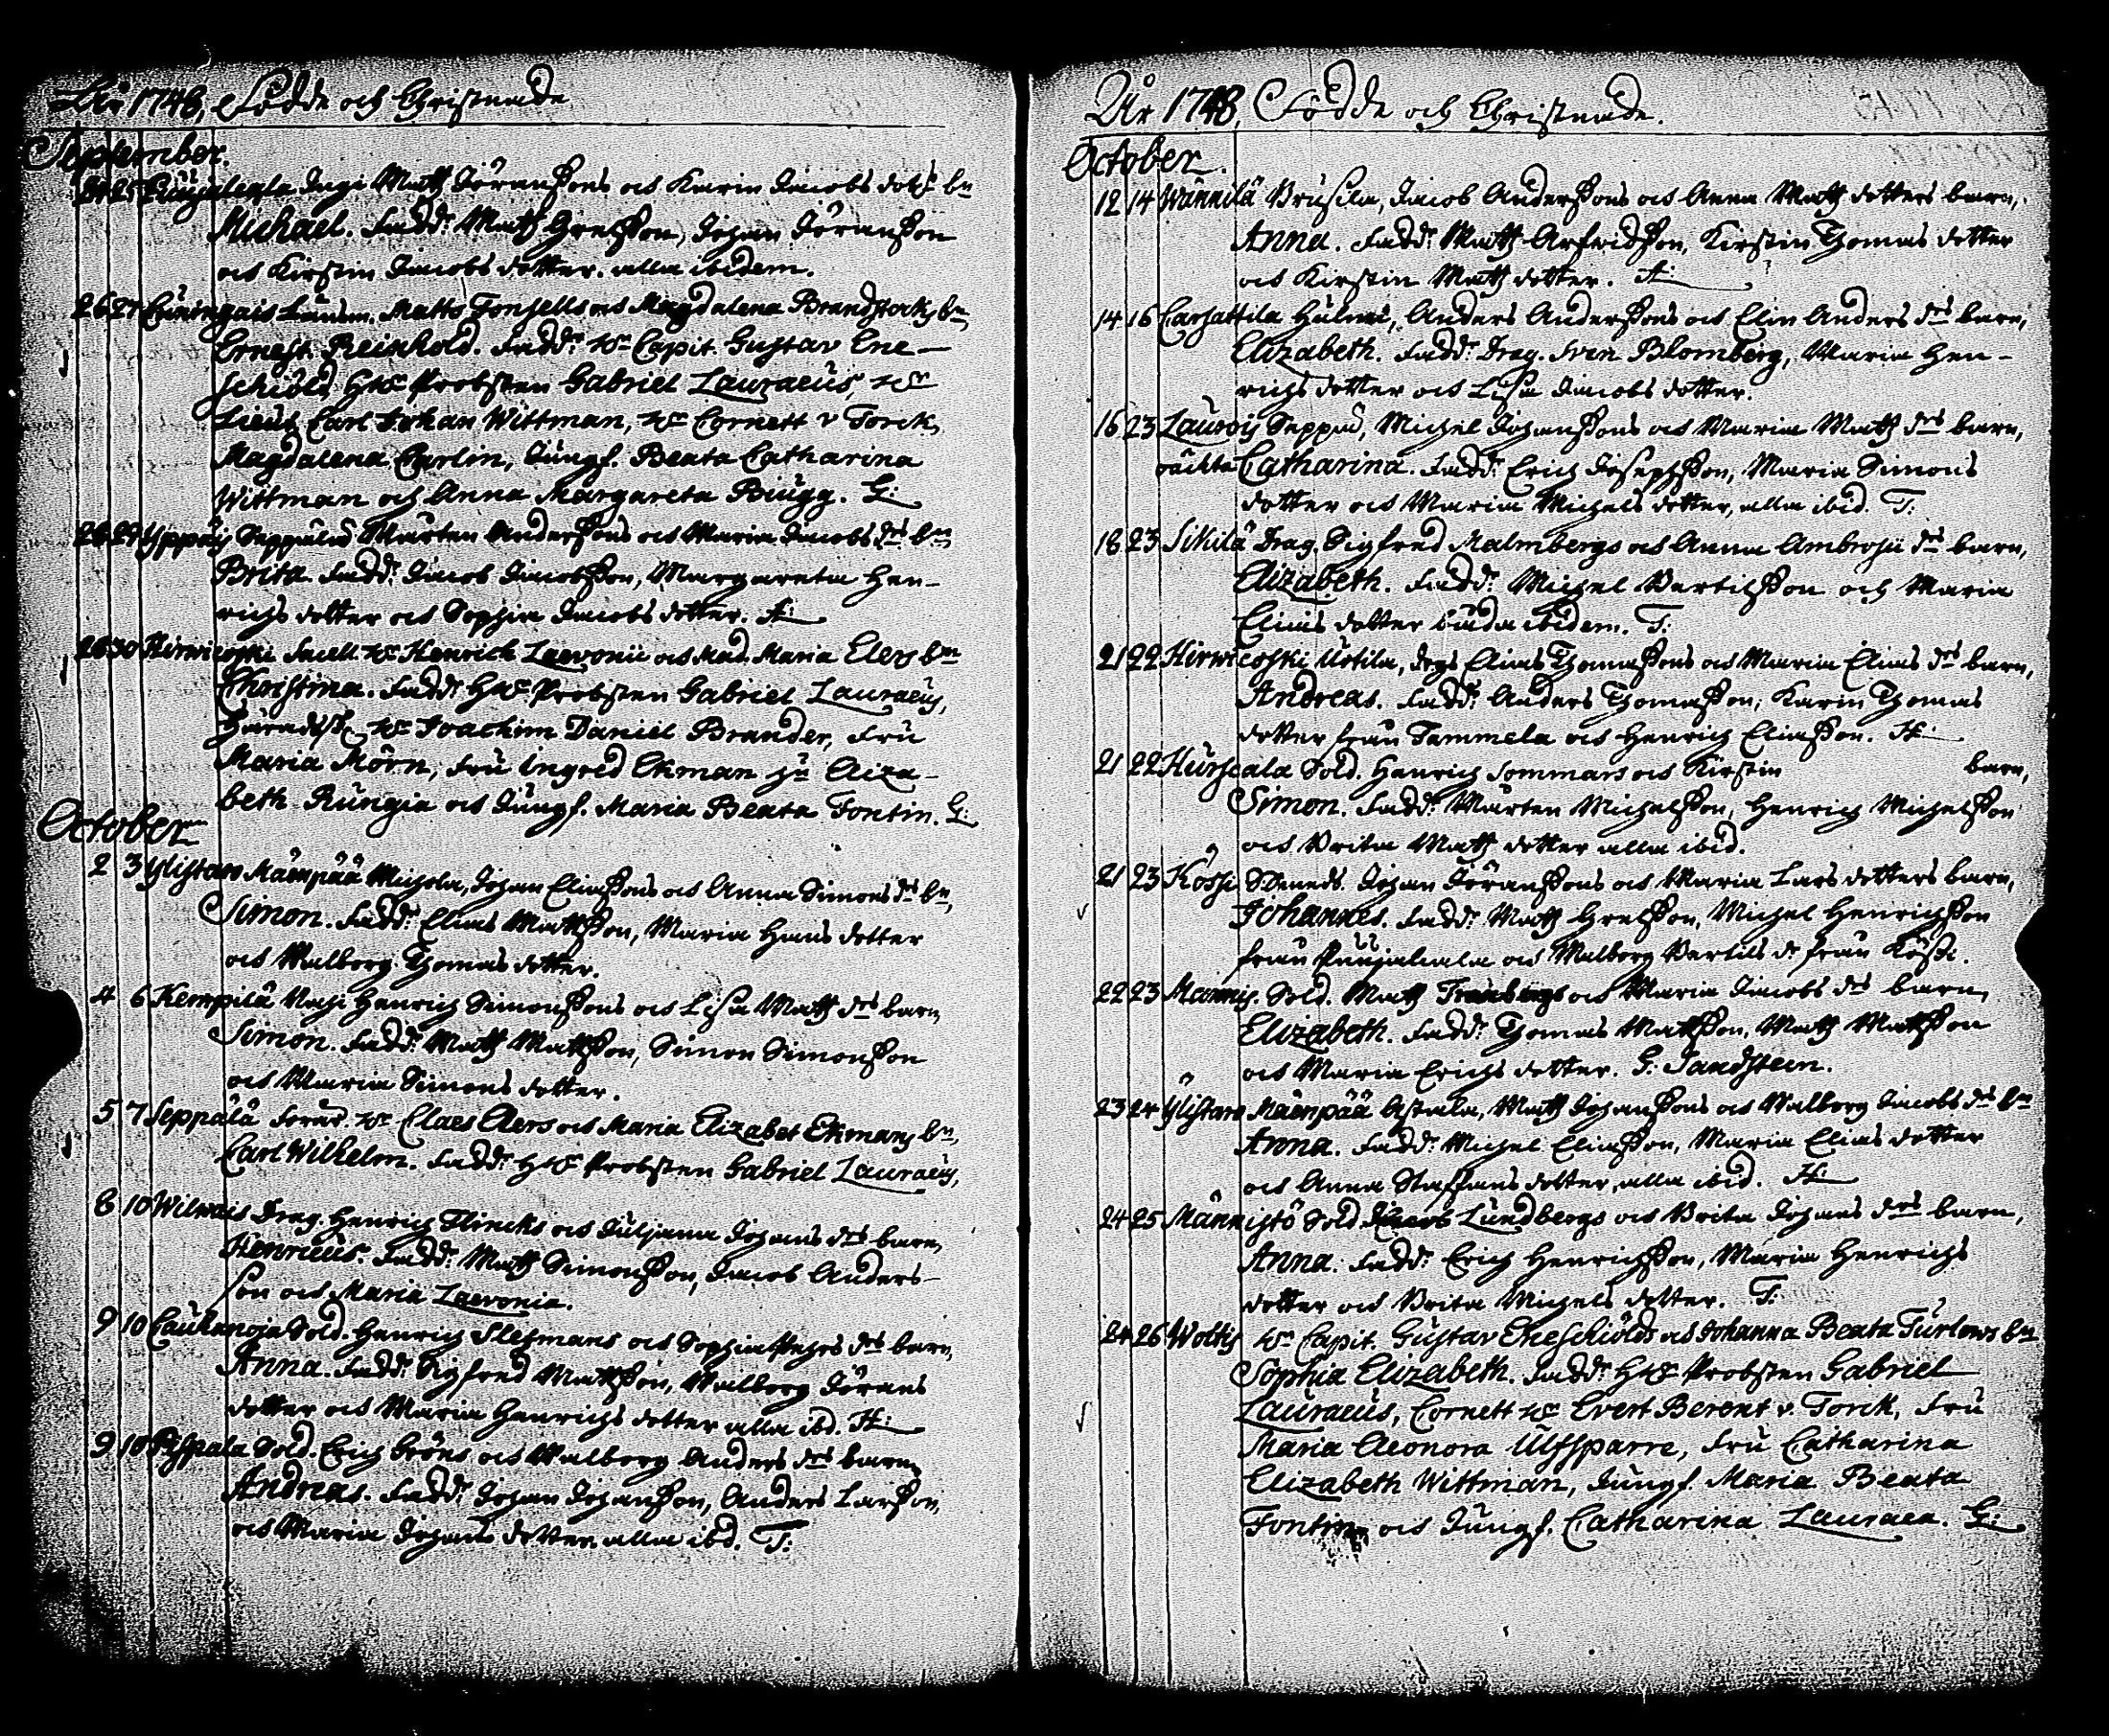 År 1748, Födde och Christnade
September.
24 25 Puujalcala Ingi Matth Jöranssons och Karin Jacobs dotrs bn
Michael. Fadd: Matth Grelsson, Johan Jöransson
och Kirstin Jacobs dotter. alla ibidem.
26 27 Cuiningais Länsm. Matts Fonsells och Magdalena Brandstacks bn,
Ernest Reinhold. Fadd: Hr Capit. Gustav Ene-
schiöld, HHr Probsten Gabriel Lauraeus, Hr
Lieut. Carl Johan Wittman, Hr Cornett v Torck,
Magdalena Carlin, Jungf. Beata Catharina
Wittman och Anna Margareta Bugg. G:
28 29 Yppäis Seppälä Mårten Anderssons och Maria Jacobs drs bn,
Brita. Fadd: Jacob Jacobsson, Margareta Hen-
richs dotter och Sophia Jacobs dotter. H:
28 30 Hirwicoski Hr Henrich Laevonii och Mad. Maria Elers bn
Christina. Fadd: HHr Probsten Gabriel Lauraeus,
Häradsh. Hr Joachim Daniel Brander, Fru
Maria Mörn, Fru Ingred Ekman, Eliza-
beth Rungia och Jungf. Maria Beata Fontin. G:
October
2 3 Ylistaro Mäenpää Michola, Johan Eliassons och Anna Simons drs bn,
Simon. Fadd: Elias Mattsson, Maria Hans dotter
och Walborg Thomas dotter.
4 6 Kempilä Henrich Simonssons och Lisa Matth drs barn,
Simon. Fadd: Matth Mattsson, Simon Simonsson
och Maria Simons dotter.
5 7 Seppälä Hr Claes Elers och Maria Elizabet Ekmans bn,
Carl Wilhelm. Fadd: HHr Probsten Gabriel Lauraeus,
8 10 Wilwais Drag. Henrich Flincks och Juljana Johans drs barn,
Henricus. Fadd: Matth Simonsson, Jacob Anders-
son och Maria Laevonia.
9 10 Caukanoja Sold. Henrich Slethmans och Sophia Pehrs drs barn,
Anna. Fadd: Sigfred Mattsson, Walborg Jörans
dotter och Maria Henrichs dotter alla ibd. H:
9 10 Pispala Sold. Erich Gröns och Walborg Anders drs barn,
Andreas. Fadd: Johan Johansson, Anders Larsson,
och Maria Johans dotter alla ibd. T:
År 1748, Födde och Christnade.
October.
12 14 Wännilä Brusila, Jacob Anderssons och Anna Matth dotters barn,
Anna. Fadd: Matth Arfwidsson, Kirstin Thomas dotter
och Kirstin Matth dotter. H:
14 16 Carhattila Anders Anderssons och Elin Anders drs barn,
Elizabeth. Fadd: Drag. Sven Blomberg, Maria Hen-
richs dotter och Lisa Jacobs dotter.
16 23 Laurois Seppä, Michel Johanssons och Maria Matth drs barn,
oächta Catharina. Fadd: Erich Josephsson, Maria Simons
dotter och Maria Michels dotter, alla ibid. T:
18 23 Sikilä Drag. Sigfred Malmbergs och Anna Ambrosii drs barn,
Elizabeth. Fadd: Michel Bertilsson och Maria
Elias dotter båda ibidem. T:
21 22 Hirwicoski Uotila, Elias Thomassons och Maria Elias drs barn,
Andreas. Fadd: Anders Thomasson, Karin Thomas
dotter från Tammela och Henrich Eliasson. H:
21 22 Hurscala Sold. Henrich Sommars och Kirstin barn,
Simon. Fadd: Mårten Michelsson, Henrich Michelsson
och Brita Matth dotter alla ibid.
21 23 Köşşi Johan Jöranssons och Maria Lars dotters barn,
Johannes. Fadd: Matth Grelsson, Michel Henrichsson
från Puujalcala och Walborg Bertils dr från
22 23 Mannis. Sold. Matth Tranbergs och Maria Jacobs drs barn,
Elizabeth. Fadd: Thomas Mattsson, Matth Mattsson
och Maria Erichs dotter. G: Sandsteen.
23 24 Ylistaro Mäenpää Astala, Matth Johanssons och Walborg Jacobs drs bn
Anna. Fadd: Michel Eliasson, Maria Elias dotter
och Anna Staffans dotter, alla ibid. H:
24 25 Männistö Sold. Lundbergs och Brita Johans drs barn,
Anna. Fadd: Erich Henrichsson, Maria Henrichs
dotter och Brita Michels dotter. T:
24 26 Woltis Hr Capit. Gustav Eneschiölds och Johanna Beata Furlows bn
Sophia Elizabeth. Fadd: HHr Probsten Gabriel
Lauraeus, Cornett Hr Evert Berent v. Torck, Fru
Maria Eleonora Ulfsparre, Fru Catharina
Elizabeth Wittman, Jungf. Maria Beata
Fontin och Jungf. Catharina Lauraea. G: